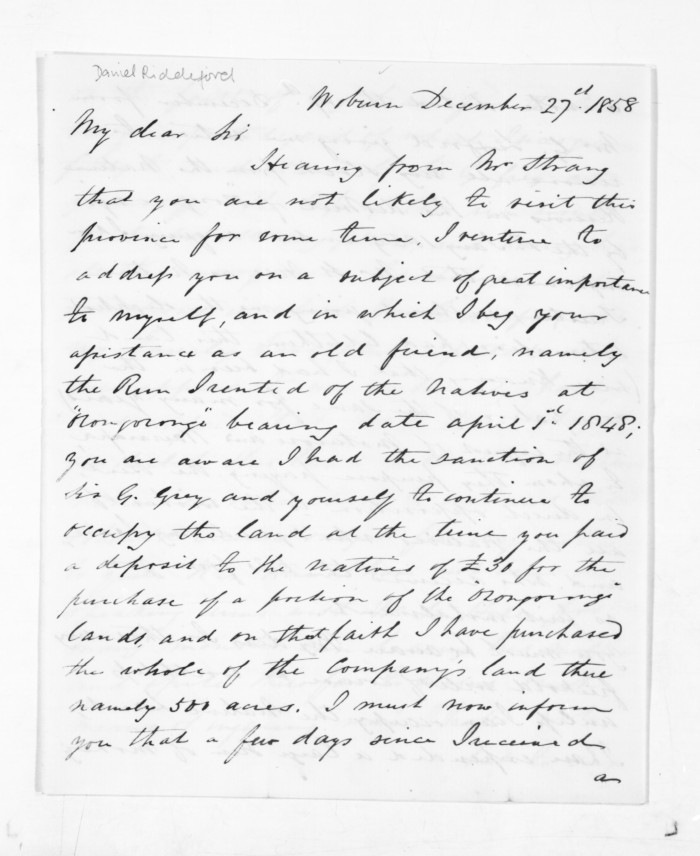 Daniel Riddiford
Woburn December 27.d 1858
My dear Sir
Hearing from Mr. Strang
that you are not likely to visit this
province for some time. I venture to
address you on a subject of great importance
to myself, and in which I beg your
assistance as an old friend; namely
the Run I rented of the natives at
"Orongoronga" bearing date april 1st 1848;
you are aware I had the sanction of
Sir G. Grey and yourself to continue to
occupy the land at the time you paid
a deposit to the natives of £30 for the
purchase of a portion of the "Orongoronga"
lands, and on that faith I have purchased
the whole of the Company's land there
namely 500 acres. I must now inform
you that a few days since I received
a